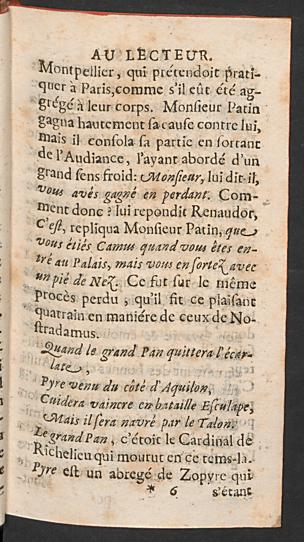 AU LECTEUR.
Montpellier, qui prétendoit prati-
quer à Paris, comme s'il eût été ag-
grégé à leur corps. Monsieur Patin
gagna hautement sa cause contre lui,
mais il consola sa partie en sortant
de l'Audiance, l'ayant abordé d'un
grand sens froid: Monsieur, lui dit-il,
vous avés gagné en perdant. Com-
ment donc? lui repondit Renaudot,
C'est, repliqua Monsieur Patin, que
vous étiés Camus quand vous êtes en-
tré au Palais, mais vous en sortez avec
un pié de Nez. Ce fut sur le même
procès perdu, qu'il fit ce plaisant
quatrain en maniére de ceux de No-
stradamus.
Quand le grand Pan quittera l'écar-
late,
Pyre venu du côté d'Aquilon,
Cuidera vaincre en bataille Esculape,
Mais il sera navré par le Talon.
Le grand Pan, c'étoit le Cardinal de
Richelieu qui mourut en ce tems-là.
Pyre est un abregé de Zopyre qui
* 6 s'étant